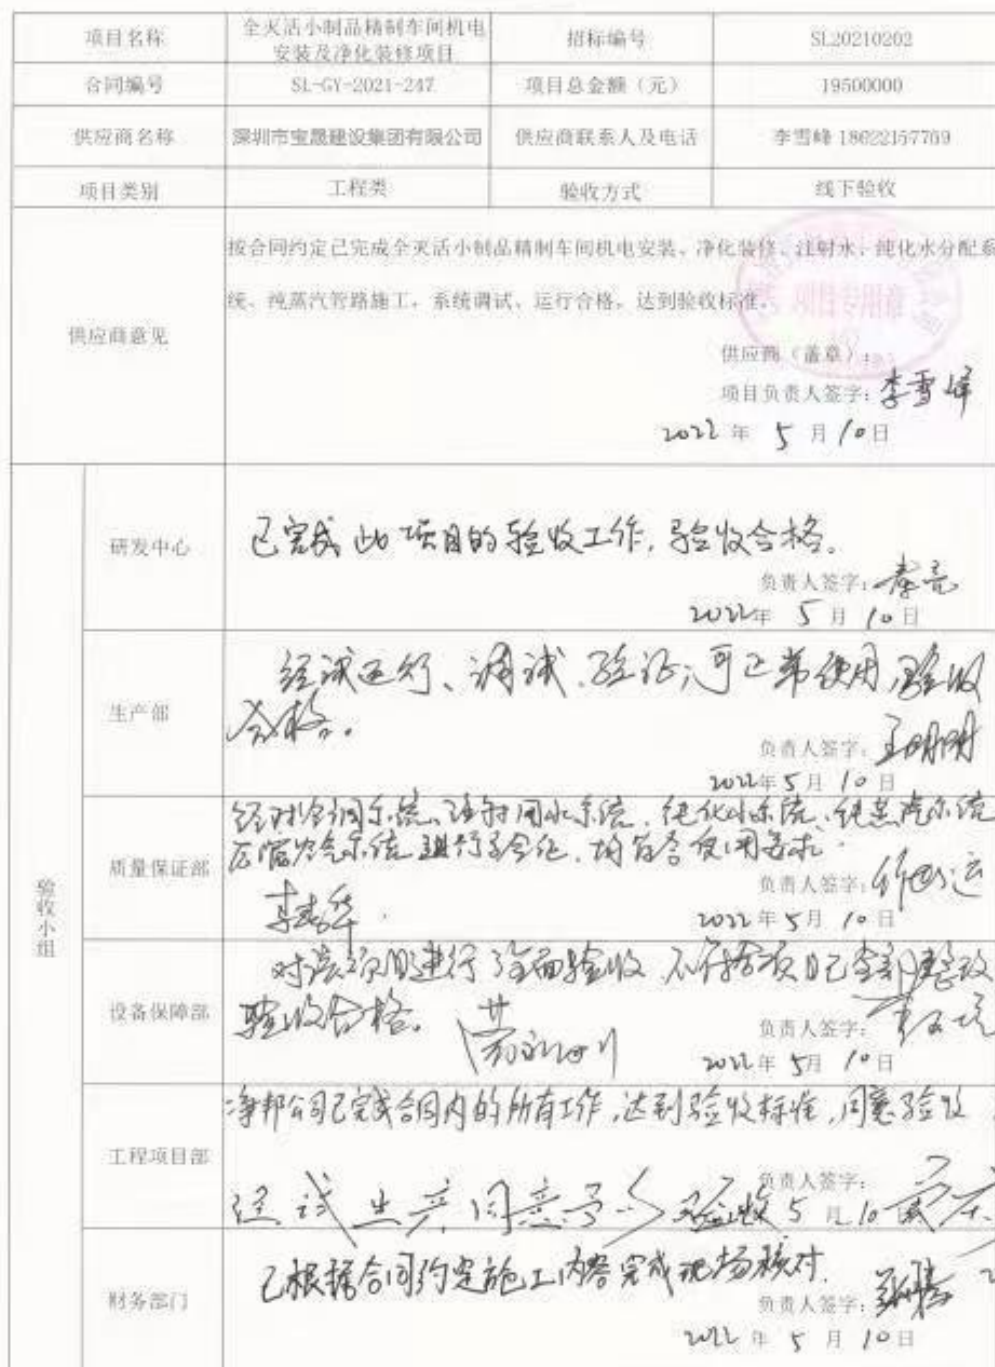 项目名称
全灭活小制品精制车间机电
安装及净化装修项目
招标编号
SL20210202
合同编号
SL-GY-2021-247
项目总金额（元）
19500000
供应商名称
深圳市宝晟建设集团有限公司
供应商联系人及电话
李雪峰 18622157769
项目类别
工程类
验收方式
线下验收
供应商意见
按合同约定已完成全灭活小制品精制车间机电安装、净化装修、注射水、纯化水分配系
统、纯蒸汽管路施工，系统调试、运行合格，达到验收标准。
项目专用章
供应商（盖章）：
项目负责人签字：李雪峰
2022 年 5 月 10 日
验收小组
研发中心
已完成此项目的验收工作，验收合格。
负责人签字：
2022年 5 月 10 日
生产部
经试运行、调试、验证，可正常使用，验收
合格。
负责人签字：王明明
2022年 5 月 10 日
质量保证部
经对空调系统、注射用水系统、纯化水系统、纯蒸汽系统
压缩空气系统进行了验证，均符合使用要求。
负责人签字：
2022 年 5 月 10 日
设备保障部
对该项目进行了全面验收，不符合项目已全部整改
验收合格。
负责人签字：
2022 年 5 月 10 日
工程项目部
净邦公司已完成合同内的所有工作，达到验收标准，同意验收
负责人签字：
经试生产同意予以验收 5 月 10
财务部门
已根据合同约定施工内容完成现场核对.
负责人签字：
2022 年 5 月 10 日